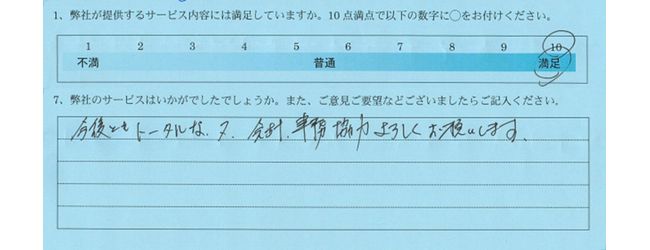 1、弊社が提供するサービス内容には満足していますか。10点満点で以下の数字に○をお付けください。
1 2 3 4 5 6 7 8 9 10
不満 普通 満足
7、弊社のサービスはいかがでしたでしょうか。また、ご意見ご要望などございましたらご記入ください。
今後ともトータルな、又、会計、事務協力よろしくお願いします。